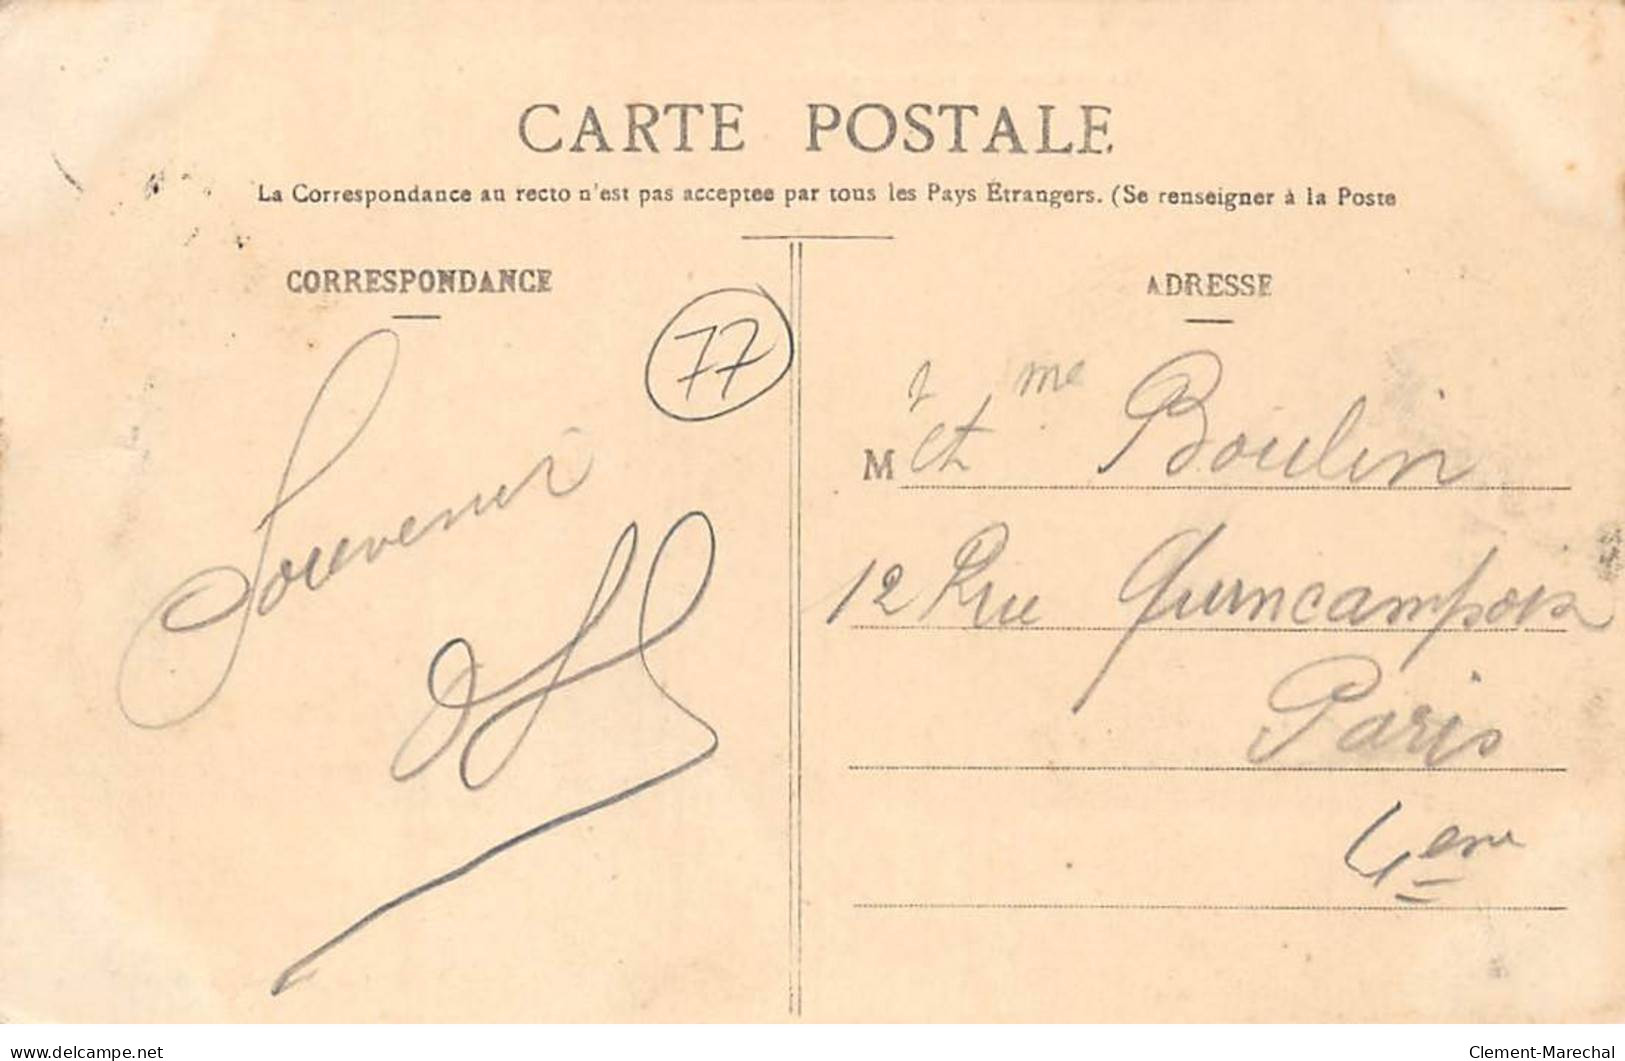 CARTE POSTALE
La Correspondance au recto n'est pas acceptee par tous les Pays Étrangers. (Se renseigner à la Poste
CORRESPONDANCE
77
Souvenir
ADRESSE
M r et me Boulin
12 Rue Quincampoix
Paris
4eme
delcampe.net
Clement-Marechal